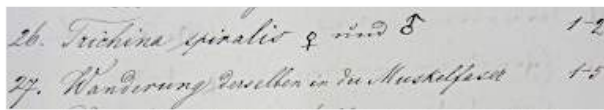 26. Trichina spiralis ♀ und ♂ 1-2
27. Wanderung derselben in der Muskelfaser 1-5